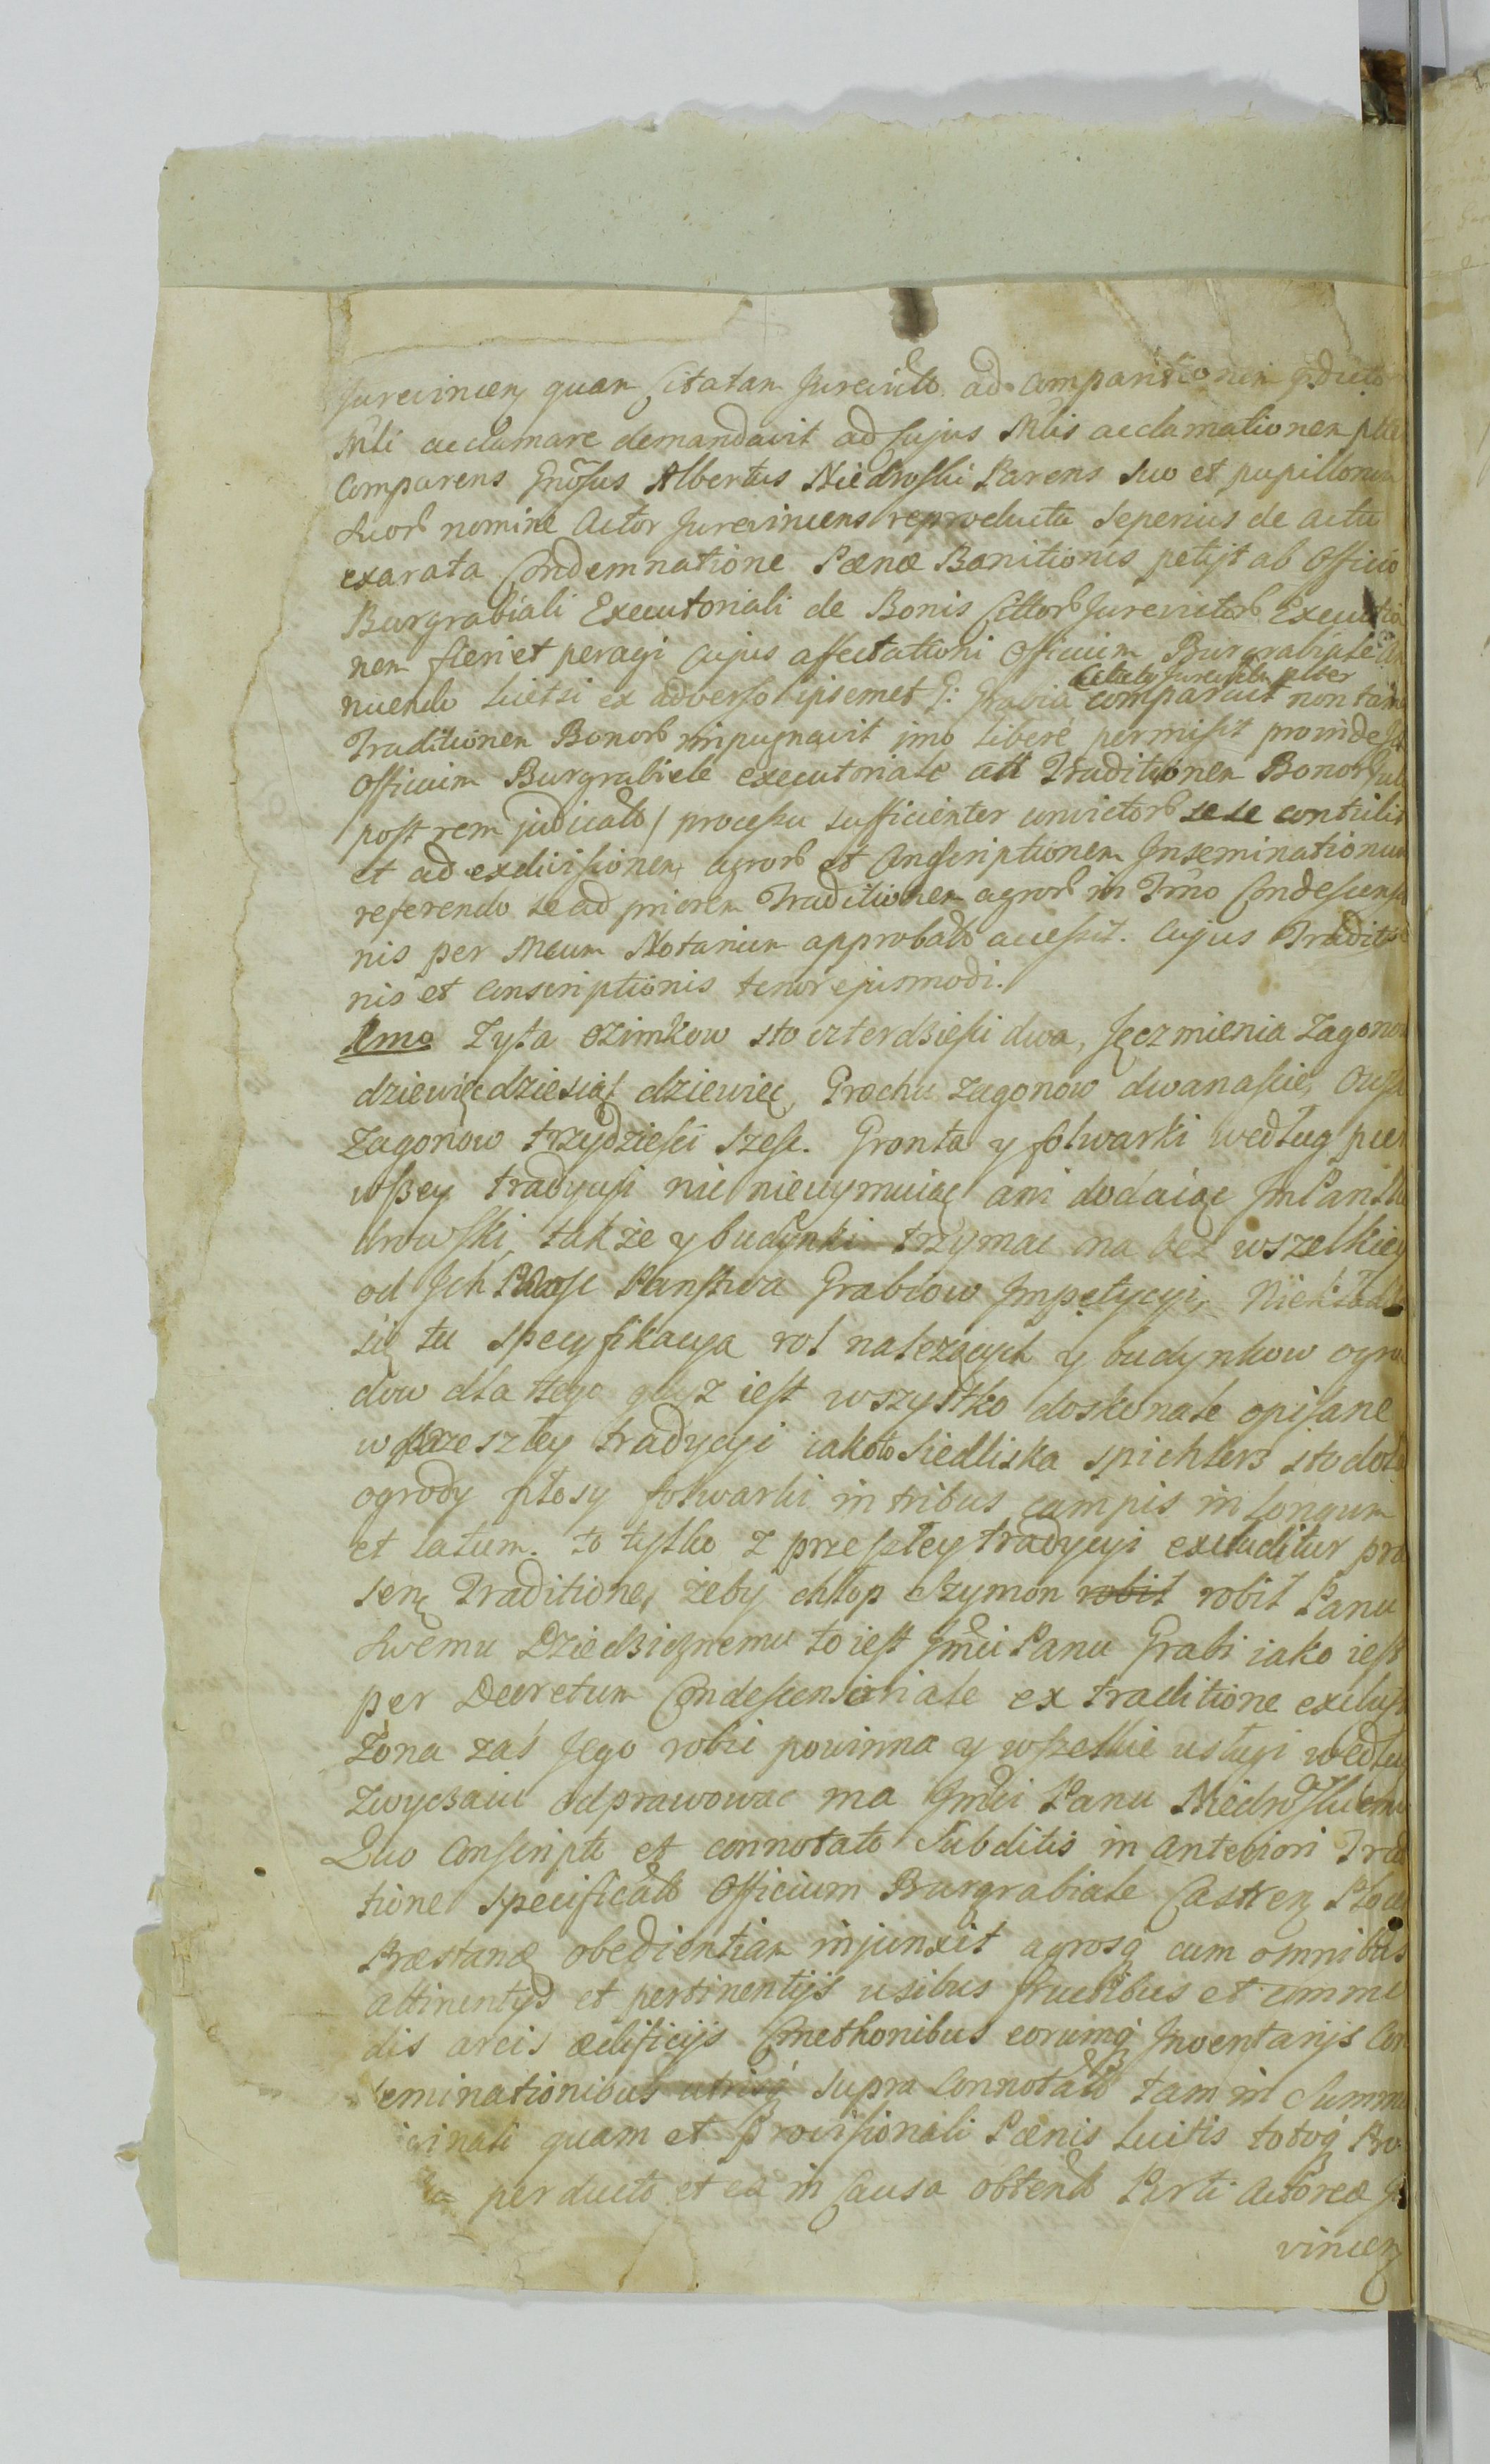 Jurevincen quam Citatam Jurevict ad Comparitionem
Mli acclamare demandavit ad Cujus Mlis acclamationem
Comparens Gnosus Albertus Niedroski Parens suo et pupillorum
Suor nomine Actor Jurevincens reproducta sepenus de actu
exarata Condemnatione Pœnæ Banitionis petijt ab Officio
Burgrabiali Executoriali de Bonis Cittor Jurevictor Executio
nem fieri et peragi Cujus affectationi Officium Burgrabiale An
nuendo Licetsi ex adverso ipsemet G: Grabia comparuit non tam
Traditionem Bonor impugnavit imo libere permisit proinde
Officium Burgrabiale executoriale ad Traditionem Bonor
post rem judicato processu sufficienter convictor sese contulit
et ad exdivisionem agror et Conscriptionem Inseminationum
referendo se ad priorem Traditionem agror in Tmo Condescensio
nis per Meum Notarium approbato accessit. Cujus Traditio
nis et conscriptionis tenor ejusmodi.
Imo Zyta ozimkow sto czterdziesci dwa, Jęczmienia Zagonow
dziewięcdziesiąt dziewięc, Grochu zagonow dwanascie, Owsa
Zagonow trzydziesci szesc. Gronta y folwarki według pier
wszey tradycyi nic nieuymuiąc ani dodaiąc JmPan Nie
drowski, także y budynki trzymac ma bez wszelkiey
od Jch Panstwa Grabiow Jmpetycyi,
się tu specyfikacya rol należących y budynkow ogro
dow dla tego gdyz iest wszystko doskonale opisane
w przeszłey tradycyi iakoto Siedliska spichlerz stodoła
ogrody płosy folwarki in tribus campis in longum
et latum. to tylko z przeszłey tradycyi excluditur prae
senę Traditione, żeby chłop Szymon robił robił Panu
Swemu Dziedzicznemu to iest Jmci Panu Grabi iako iest
per Decretum Condescensoriale ex traditione exclus
Żona zaś Jego robic powinna y wszelkie usługi według
Zwyczaiu odprawowac ma Jmci Panu Niedroskiemu
Quo Conscripto et connotato Subditis in anteriori Tradi
tione specificato Officium Burgrabiale Castren Ploc
Præstanę obedientiam injunxit agrosq cum omnibus
attinentys et pertinentijs usibus fructibus et commo
dis areis ædificijs Cmethonibus eorumq Inventarijs Con
seminationibus utrisq supra Connotato tam in Summa
ginali quam et Provisionali Pœnis Luitis totoq Pro
perducto et ea in Causa obtento Parti Actoreæ
vincen